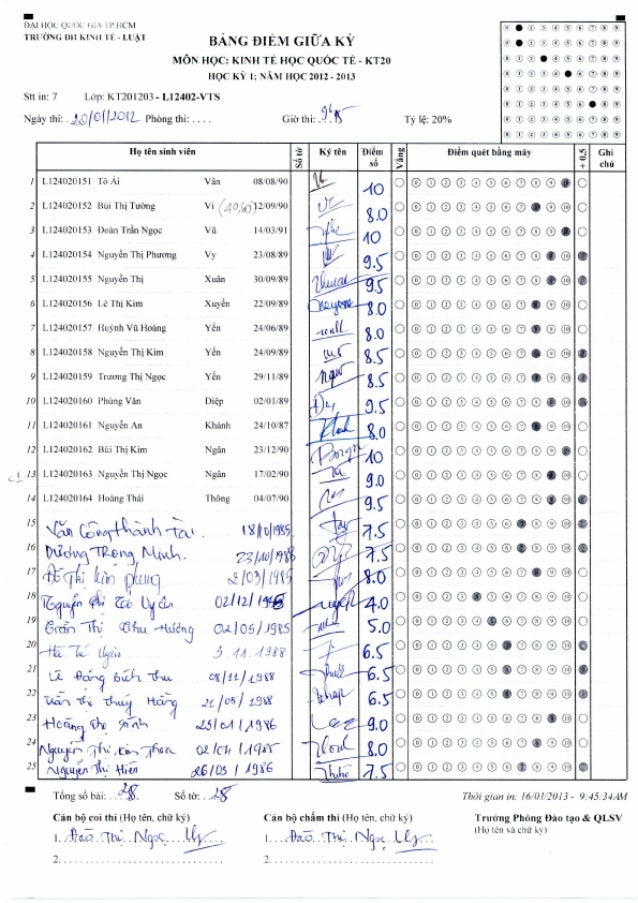 ĐẠI HỌC QUỐC GIA TP.HCM
TRƯỜNG ĐH KINH TẾ - LUẬT
BẢNG ĐIỂM GIỮA KỲ
MÔN HỌC: KINH TẾ HỌC QUỐC TẾ - KT20
HỌC KỲ 1; NĂM HỌC 2012 - 2013
Stt in: 7 Lớp: KT201203 - L12402-VTS
Ngày thi: 20/01/2012 Phòng thi: .... Giờ thi: Tỷ lệ: 20%
Họ tên sinh viên Số tờ Ký tên Điểm số Vắng Điểm quét bằng máy + 0,5 Ghi chú
1 L124020151 Tô Ái Vân 08/08/90 10
2 L124020152 Bùi Thị Tường Vi 12/09/90 8.0
3 L124020153 Đoàn Trần Ngọc Vũ 14/03/91 10
4 L124020154 Nguyễn Thị Phương Vy 23/08/89 9.5
5 L124020155 Nguyễn Thị Xuân 30/09/89 9.5
6 L124020156 Lê Thị Kim Xuyến 22/09/89 8.0
7 L124020157 Huỳnh Vũ Hoàng Yến 24/06/89 8.0
8 L124020158 Nguyễn Thị Kim Yến 24/09/89 8.5
9 L124020159 Trương Thị Ngọc Yến 29/11/89 8.5
10 L124020160 Phùng Văn Diệp 02/01/89 9.5
11 L124020161 Nguyễn An Khánh 24/10/87 8.0
12 L124020162 Bùi Thị Kim Ngân 23/12/90 10
13 L124020163 Nguyễn Thị Ngọc Ngân 17/02/90 9.0
14 L124020164 Hoàng Thái Thông 04/07/90 9.5
15 Văn Công Thành Tài 18/10/1985 7.5
16 Dương Trọng Minh 23/10/1988 7.5
17 Đỗ Thị Kim Phụng 2/03/1985 8.0
18 Nguyễn Thị Tố Uyên 02/12/ 4.0
19 Trần Thị Thu Hương 02/05/1985 5.0
20 Hà Tú Uyên 3.11.1988 6.5
21 Lê Đặng Bích Thu 08/11/1988 6.5
22 Trần Thị Thúy Hằng 21/05/1988 6.5
23 Hoàng Thị 25/01/1986 9.0
24 Nguyễn Thị Kim Thoa 1985 8.0
25 Nguyễn Thị Hiền 26/03/1986 7.5
Tổng số bài: 28 Số tờ: 28 Thời gian in: 16/01/2013 - 9:45:34AM
Cán bộ coi thi (Họ tên, chữ ký) Cán bộ chấm thi (Họ tên, chữ ký) Trưởng Phòng Đào tạo & QLSV
(Họ tên và chữ ký)
1. Đào Thị Ngọc 1. Đào Thị Ngọc
2. 2.